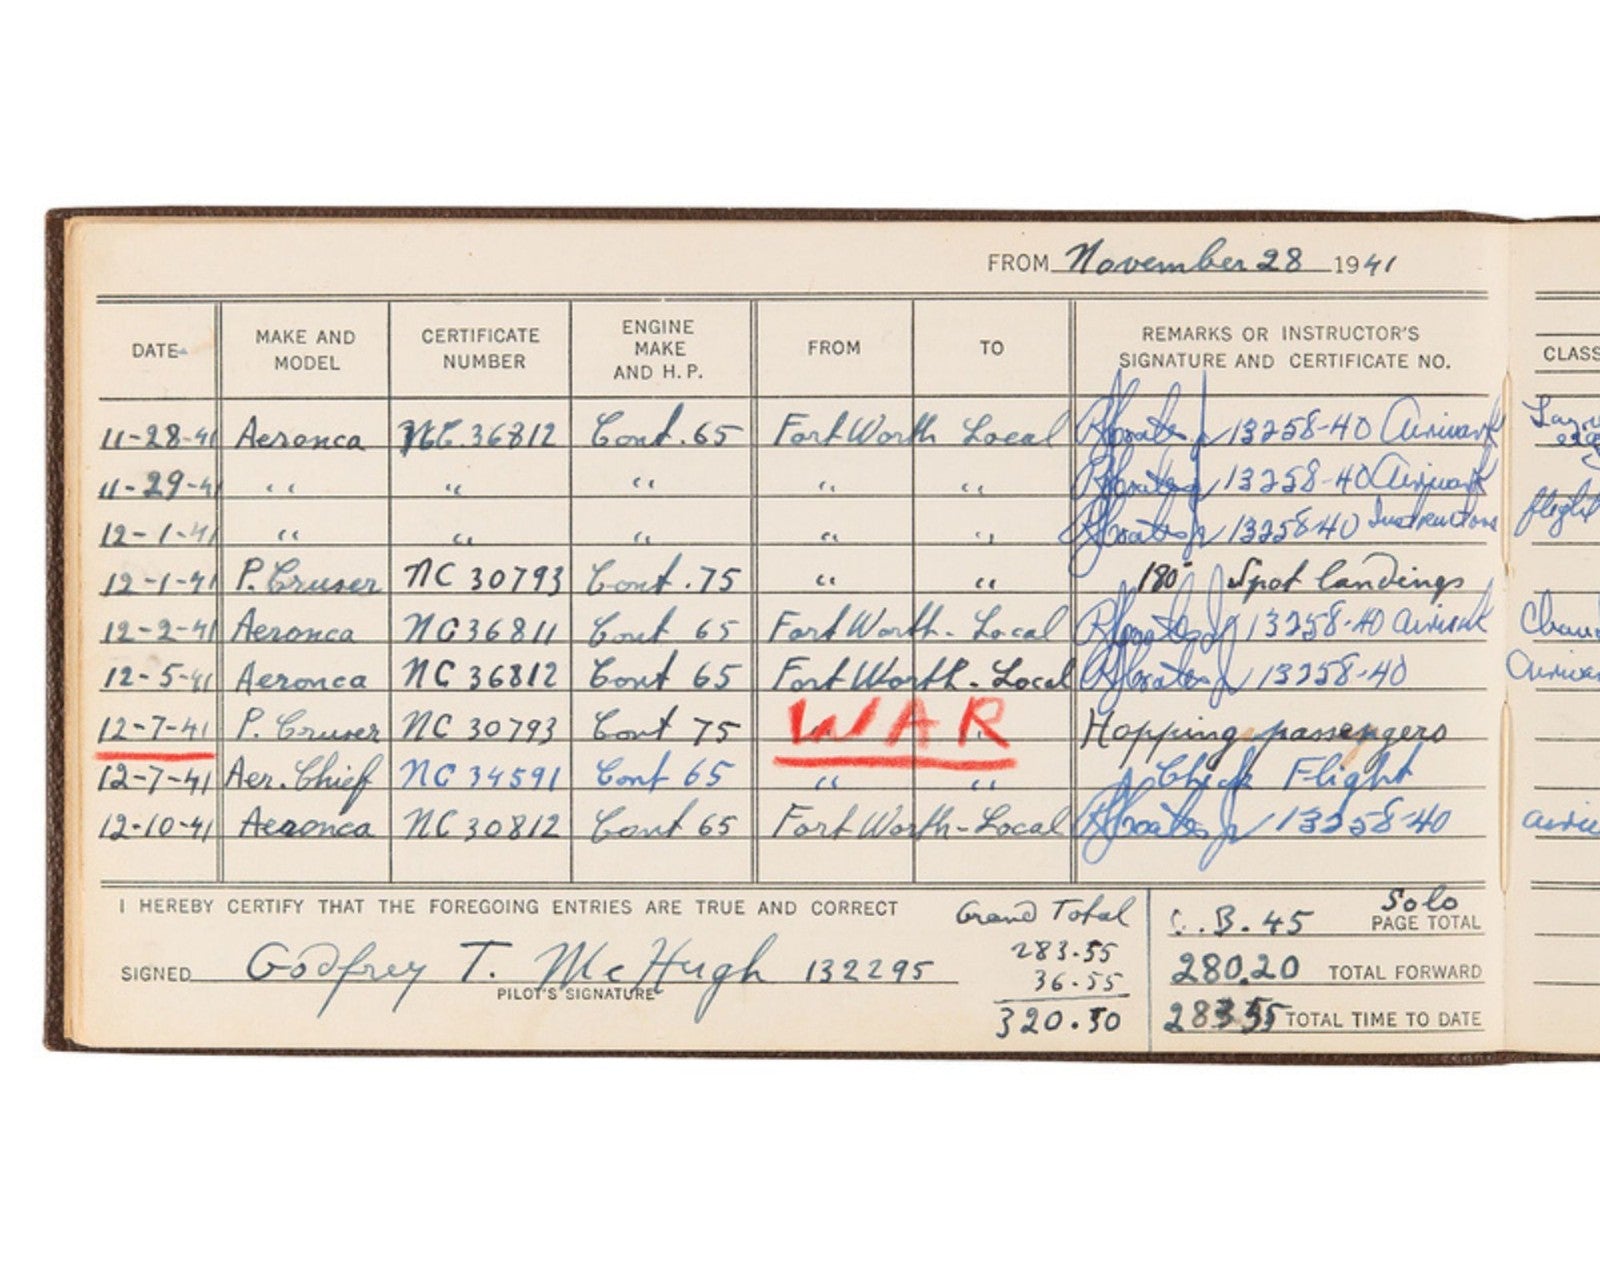 FROM November 28 1941
DATE MAKE AND MODEL CERTIFICATE NUMBER ENGINE MAKE AND H. P. FROM TO REMARKS OR INSTRUCTOR'S SIGNATURE AND CERTIFICATE NO. CLASS
11-28-41 Aeronca NC 36812 Cont. 65 Fort Worth Local 13258-40
11-29-41 " " " " " 13258-40
12-1-41 " " " " " 13258-40
12-1-41 P. Cruser NC 30793 Cont. 75 " " 180° Spot landings
12-2-41 Aeronca NC 36811 Cont 65 Fort Worth - Local 13258-40
12-5-41 Aeronca NC 36812 Cont 65 Fort Worth - Local 13258-40
12-7-41 P. Cruser NC 30793 Cont 75 WAR Hopping passengers
12-7-41 Aer. Chief NC 34591 Cont 65 " " Check Flight
12-10-41 Aeronca NC 30812 Cont 65 Fort Worth - Local 13258-40
I HEREBY CERTIFY THAT THE FOREGOING ENTRIES ARE TRUE AND CORRECT
SIGNED Godfrey T. McHugh 132295
PILOT'S SIGNATURE
Grand Total
283.55
36.55
320.50
Solo
45 PAGE TOTAL
280.20 TOTAL FORWARD
283 55 TOTAL TIME TO DATE